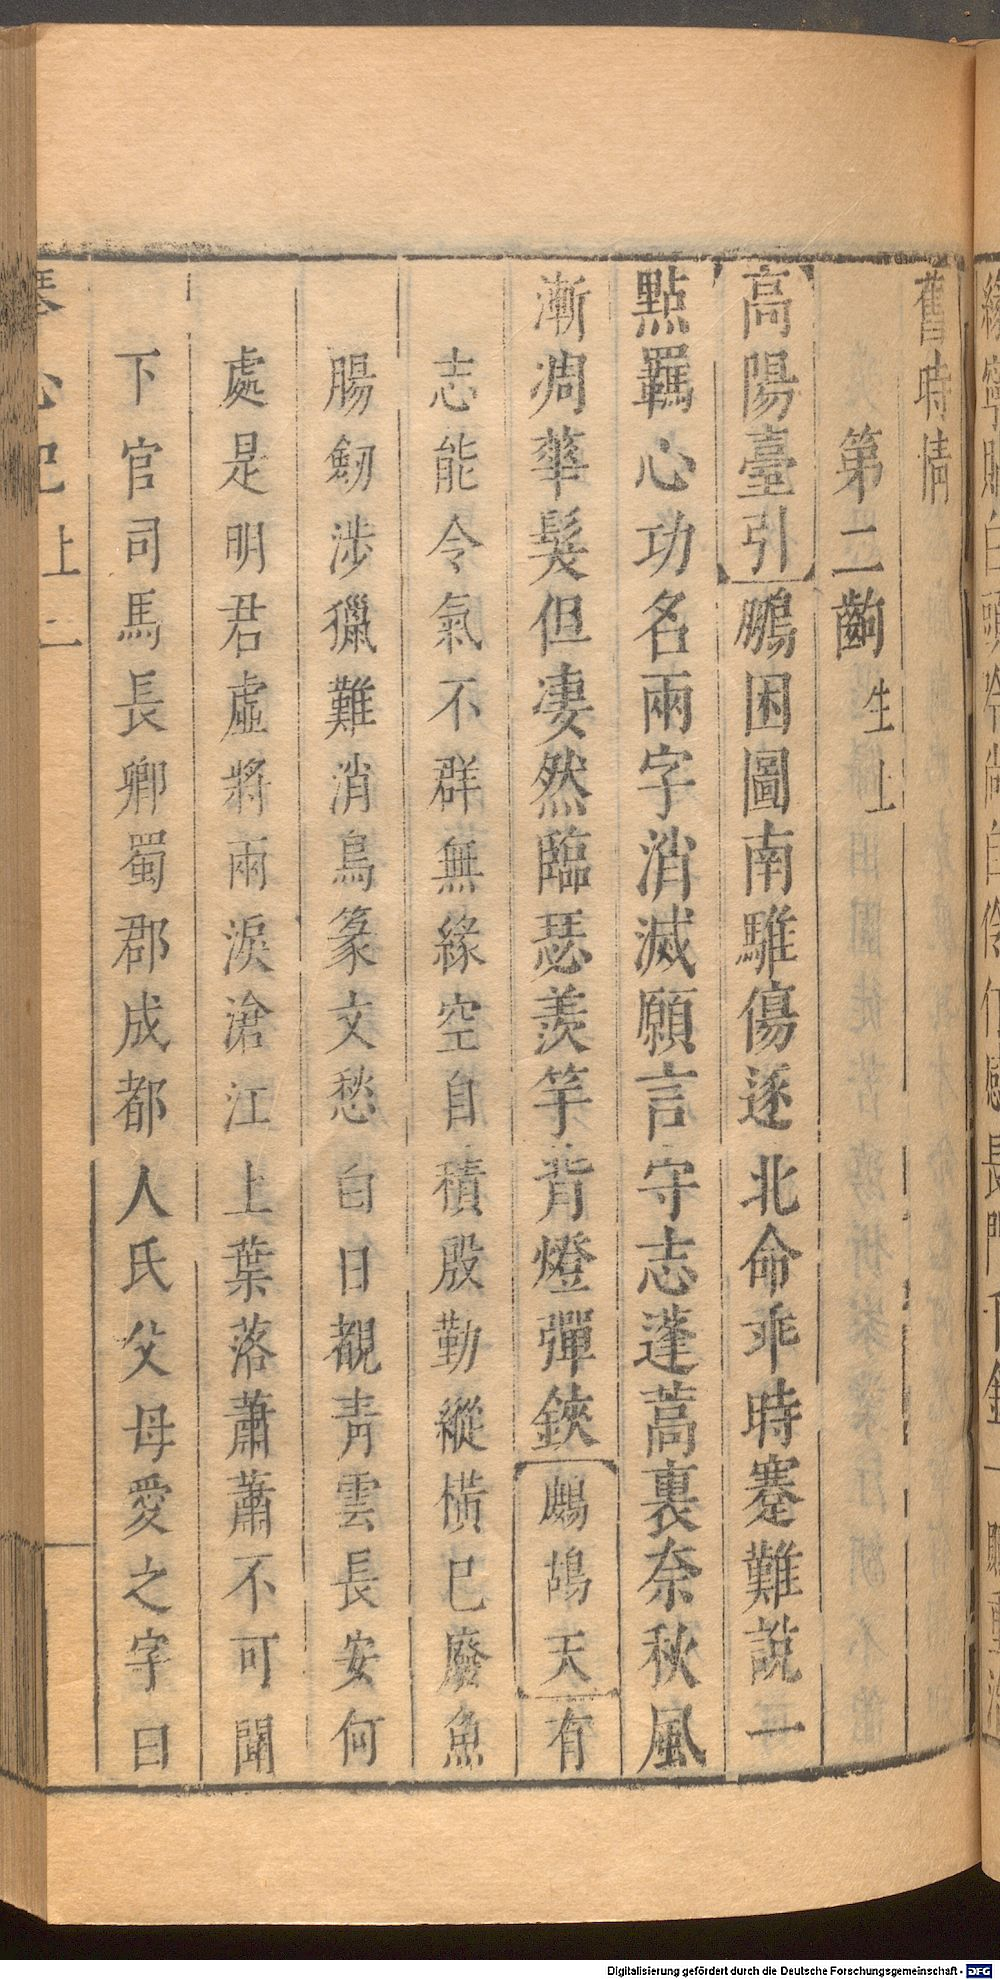 舊時情
第二齣 生上
高陽臺引 鵬困圖南騅傷逐北命乖時蹇難說一
點羈心功名兩字消滅願言守志蓬蒿裏奈秋風
漸凋華髮但凄然臨瑟羨竽背燈彈鋏 鷓鴣天 有
志能令氣不群無緣空自積殷勤縱橫已廢魚
腸劒涉獵難消鳥篆文愁白日覩青雲長安何
處是明君虛將兩淚滄江上葉落蕭蕭不可聞
下官司馬長卿蜀郡成都人氏父母愛之字曰
琴心記 上 二
Digitalisierung gefördert durch die Deutsche Forschungsgemeinschaft - DFG